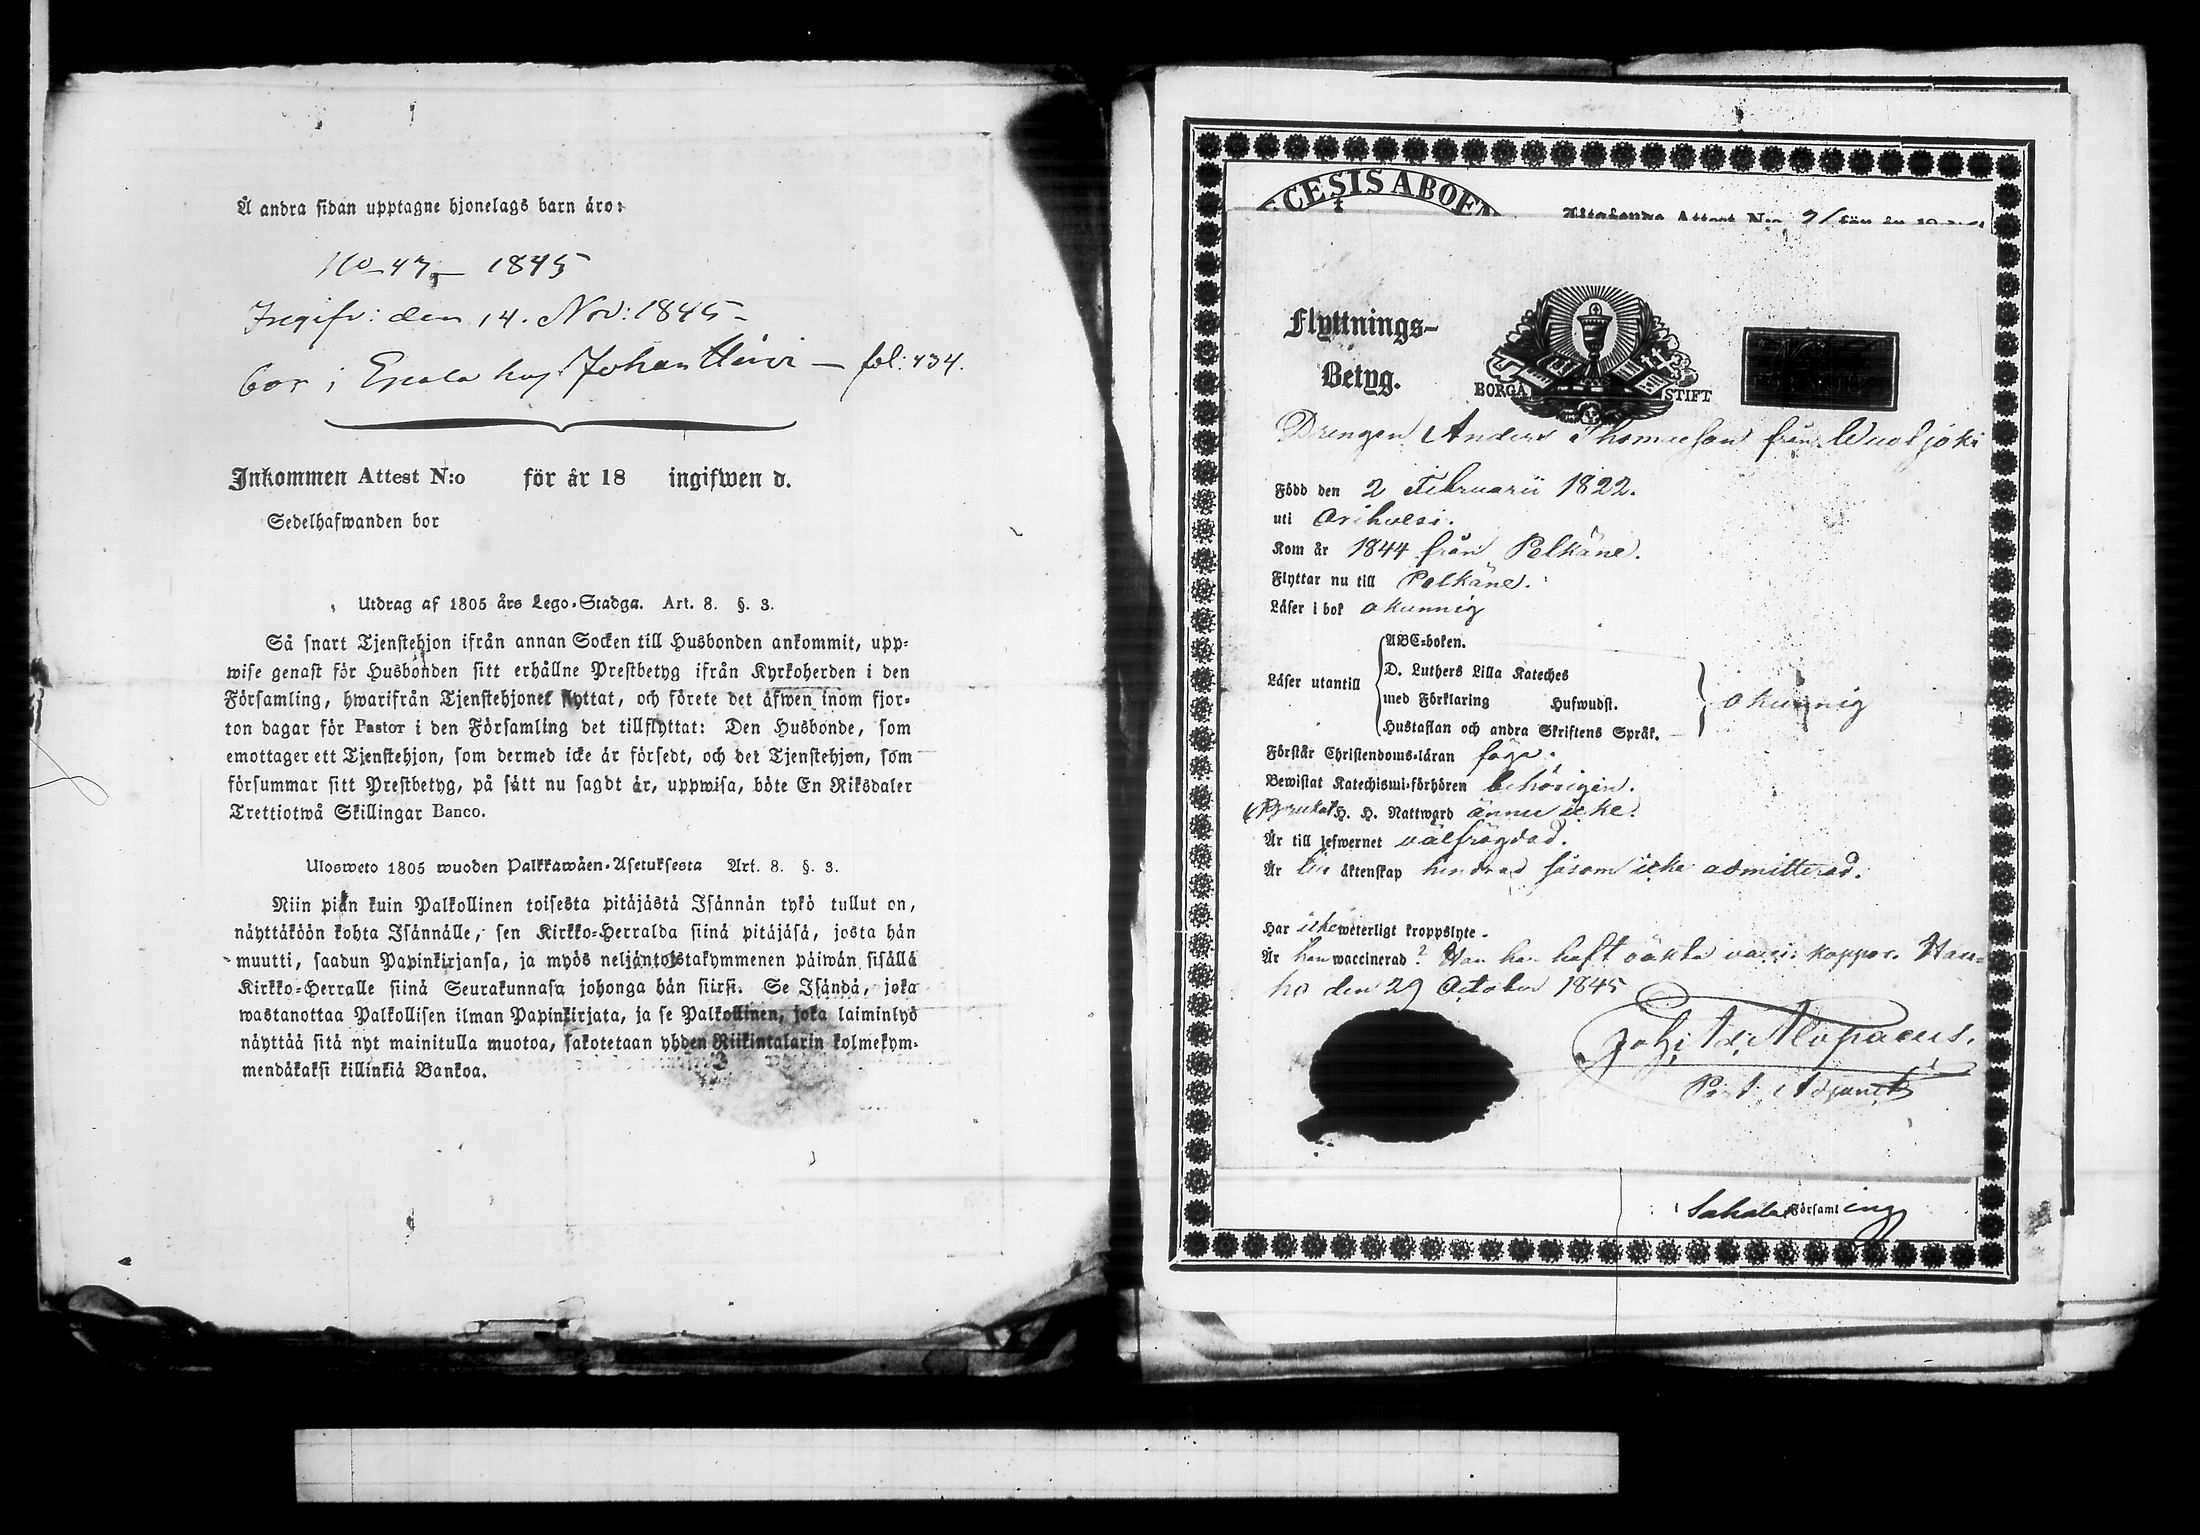 Å andra sidan upptagne hjonelags barn äro:
No 47 – 1845
Ingifv: den 14. Nov: 1845 –
bor i Epaala hos Johan – fol: 434.
Inkommen Attest N:o för år 18 ingifwen d.
Sedelhafwanden bor
Utdrag af 1805 års Lego-Stadga. Art. 8. §. 3.
Så snart Tjenstehjon ifrån annan Socken till Husbonden ankommit, upp-
wise genast för Husbonden sitt erhållne Prestbetyg ifrån Kyrkoherden i den
Församling, hwarifrån Tjenstehjonet flyttat, och förete det äfwen inom fjor-
ton dagar för Pastor i den Församling det tillflyttat: Den Husbonde, som
emottager ett Tjenstehjon, som dermed icke är försedt, och det Tjenstehjon, som
försummar sitt Prestbetyg, på sätt nu sagdt är, uppwisa, böte En Riksdaler
Trettiotwå Skillingar Banco.
Ulosweto 1805 wuoden Palkkawäen-Asetuksesta Art. 8. §. 3.
Niin piän kuin Palkollinen toisesta pitäjästä Isännän tykö tullut on,
näyttäköön kohta Isännälle, sen Kirkko-Herralda siinä pitäjäsä, josta hän
muutti, saadun Papinkirjansa, ja myös neljäntoistakymmenen päiwän sisällä
Kirkko-Herralle siinä Seurakunnasa johonga hän siirsi. Se Isändä, joka
wastanottaa Palkollisen ilman Papinkirjata, ja se Palkollinen, joka laiminlyö
näyttää sitä nyt mainitulla muotoa, sakotetaan yhden Riikintalarin kolmekym-
mendäkaksi killinkiä Bankoa.
CESIS ABOEN
Utgående Attest N:o 21 för år 18
Flyttnings-
Betyg.
BORGÅ STIFT
Drengen Anders Thomasson från Wuoljoki
Född den 2 Februarii 1822.
uti Orihvesi.
Kom år 1844 från Pelkäne.
Flyttar nu till Pelkäne.
Läser i bok okunnig
ABC-boken.
D. Luthers Lilla Kateches
Läser utantill
med Förklaring Hufwudst.
okunnig
Hustaflan och andra Skriftens Språk.
Förstår Christendoms-läran föga.
Bewistat Katechismi-förhören behörigen.
Brukat H. H. Nattward ännu icke.
Är till lefwernet välfrägdad.
Är till äktenskap hindrad såsom icke admitterad.
Har icke weterligt kroppslyte.
Är han waccinerad? Han har haft äkta koppor. Hau-
ho den 29 October 1845
Joh: Ad: Alopaeus.
Past. Adjunct
Sahalax Församling